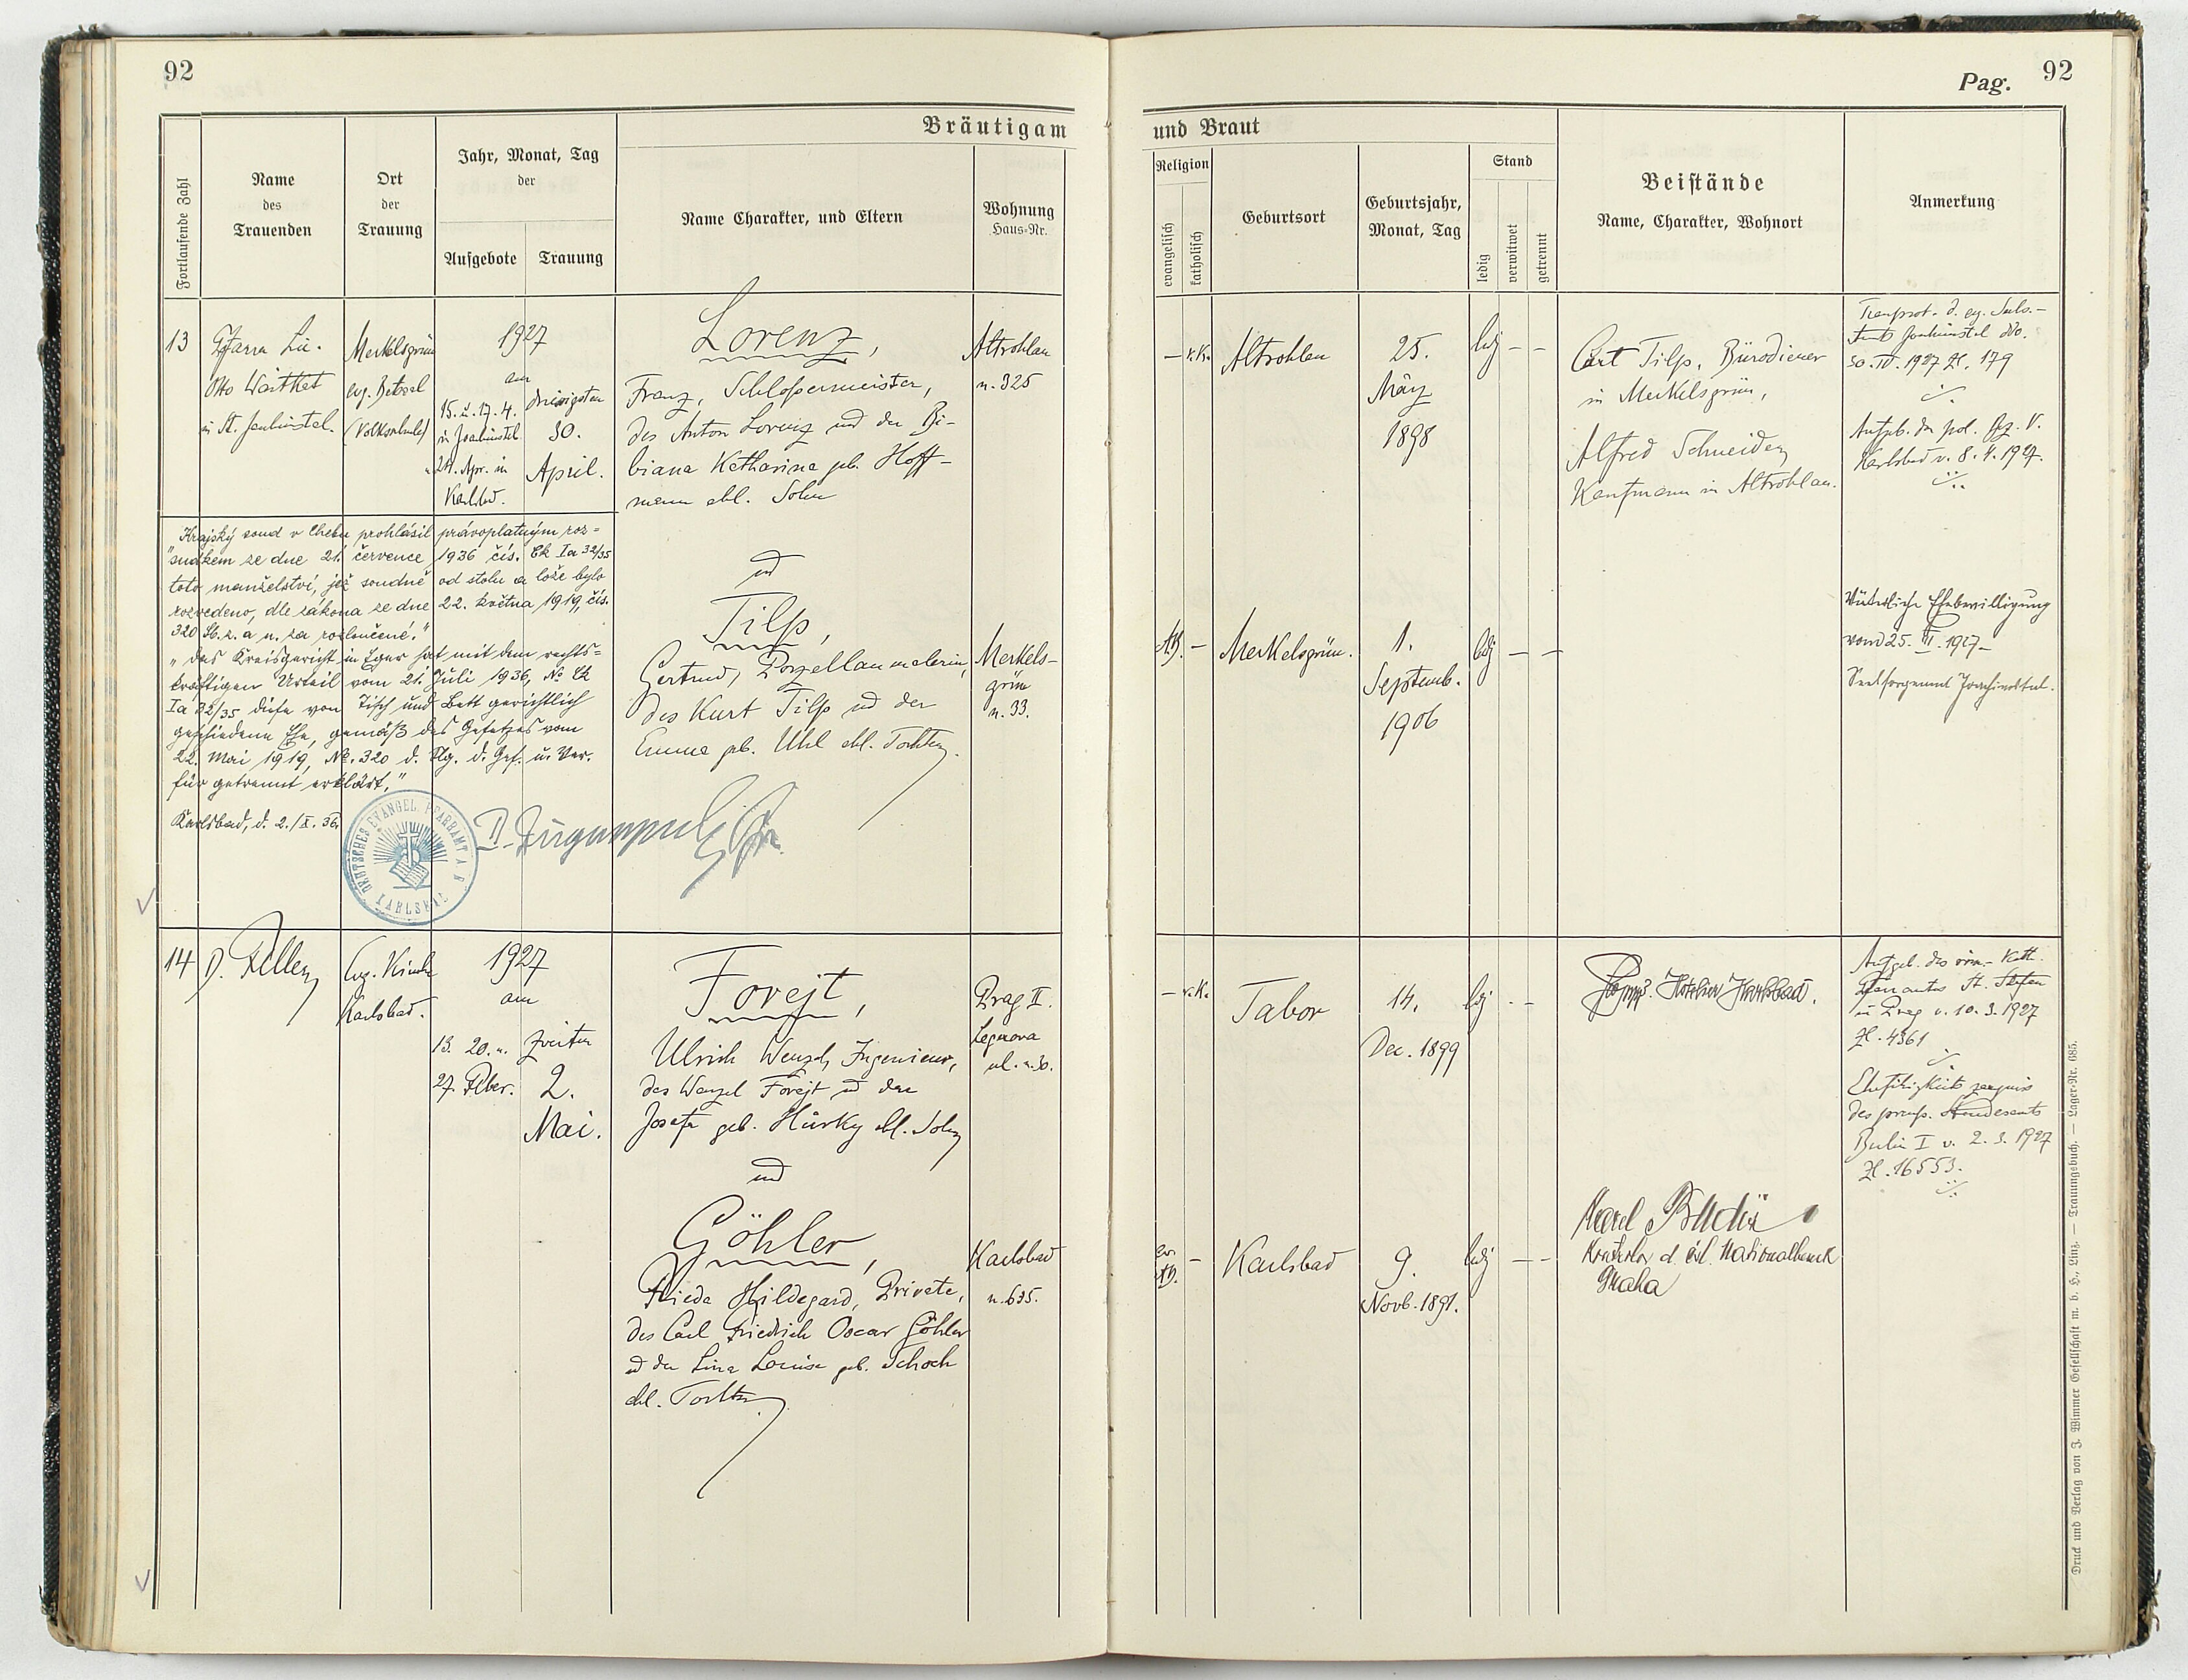 92
Pag. 92
Bräutigam
und Braut
Fortlaufende Zahl
Name
des
Trauenden
Ort
der
Trauung
Jahr, Monat, Tag
der
Aufgebote
Trauung
Name Charakter, und Eltern
Wohnung
Haus-Nr.
Religion
evangelisch
katholisch
Geburtsort
Geburtsjahr,
Monat, Tag
Stand
ledig
verwitwet
getrennt
Beistände
Name, Charakter, Wohnort
Anmerkung
13
Otto
in St.
Merkelsgrün
ev. Betsaal
(Volksschule)
1927
am
15. u. 17. 4.
in Joachimstal
24. Apr. in
Karlsbad.
dreissigsten
30.
April.
Lorenz,
Franz, Schlossermeister,
des Anton Lorenz und der Bi-
biana Katharina geb. Hoff-
mann ehl. Sohn
Altrohlau
n. 325
– r.k.
Altrohlau
25.
März
1898
ledig – –
Curt Tilp, Bürodiener
in Merkelsgrün,
Alfred Schneider
Kaufmann in Altrohlau.
30. IV. 1927 Zl. 179
Aufgeb. der pol. Bez. V.
Karlsbad v. 8. 4. 1927.
Krajský soud v Chebu prohlásil právoplatným roz=
"sudkem ze dne 21. července 1936 čís. Ck Ia 32/35
toto manželství, jež soudně od stolu a lože bylo
rozvedeno, dle zákona ze dne 22. května 1919, čís.
320 Sb. z. a n. za rozloučené."
"das Kreisgericht in Eger hat mit dem rechts=
kräftigen Urteil vom 21. Juli 1936, No Ck
Ia 32/35 diese von Tisch und Bett gerichtlich
geschiedene Ehe, gemäß des Gesetzes vom
22. Mai 1919, No. 320 d. Slg. d. Ges. u. Ver.
für getrennt erklärt."
Karlsbad, d. 2./X. 36
DEUTSCHES EVANGEL. PFARRAMT A. B. KARLSBAD
und
Tilp,
Gertrud, Porzellanmalerin,
des Kurt Tilp und der
Emma geb. Uhl ehl. Tochter.
Merkels-
grün
n. 33.
AB. –
Merkelsgrün.
1.
Septemb.
1906
ledig – –
Väterliche Ehebewilligung
vom 25. III. 1927
Seelsorgeamt Joachimstal.
14
D. Feller
Evg. Kirche
Karlsbad.
1927
am
13. 20. u.
27. Feber.
zweiten
2.
Mai.
Forejt,
Ulrich Wenzel, Ingenieur,
des Wenzel Forejt und der
Josefa geb. Hůrky ehl. Sohn
Prag II.
Legerova
ul. n. 30.
– r.k.
Tabor
14.
Dec. 1899
ledig – –
Hotelier Karlsbad.
Aufgeb. des röm.-kath.
Pfarramtes St. Stefan
in Prag v. 10. 3. 1927
Zl. 4361
Ehefähigkeitszeugnis
des preuss. Standesamts
Berlin I v. 2. 3. 1927
Zl. 16553.
und
Göhler,
Frieda Hildegard, Private,
des Carl Friedrich Oscar Göhler
und der Lina Louise geb. Schoch
ehl. Tochter
Karlsbad
n. 635.
ev.
AB. –
Karlsbad
9.
Novb. 1891.
ledig – –
Karel
d. čsl. Nationalbank
Praha
Druck und Verlag von J. Wimmer Gesellschaft m. b. H., Linz. — Trauungsbuch. — Lager-Nr. 685.